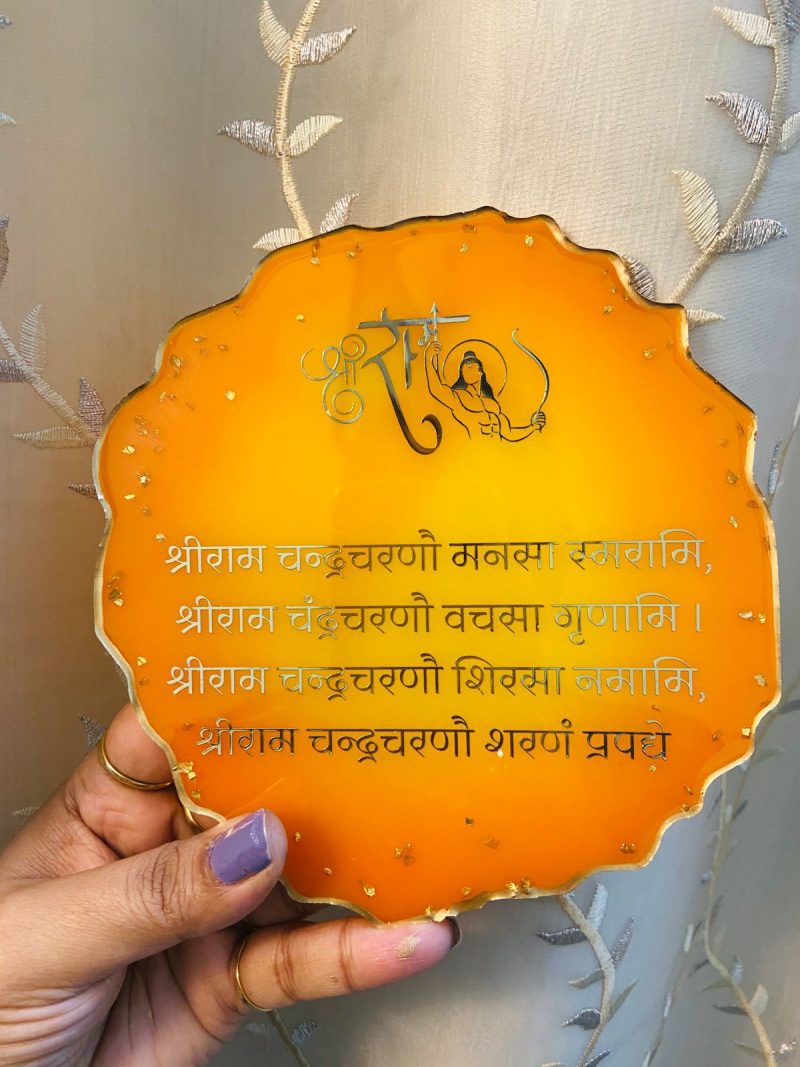 श्री राम
श्रीराम चन्द्रचरणौ मनसा स्मरामि,
श्रीराम चंद्रचरणौ वचसा गृणामि ।
श्रीराम चन्द्रचरणौ शिरसा नमामि,
श्रीराम चन्द्रचरणौ शरणं प्रपद्ये